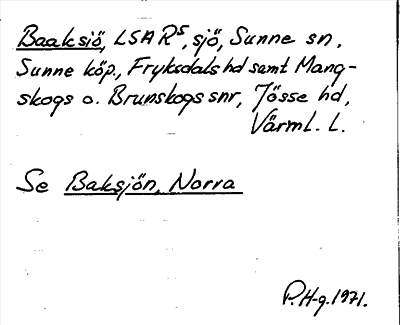 Baaksiö, LSA R⁵, sjö, Sunne sn,
Sunne köp., Fryksdals hd samt Mang-
skogs o. Brunskogs snr, Jösse hd,
Värml. l.
Se Baksjön, Norra
P.H-g. 1971.